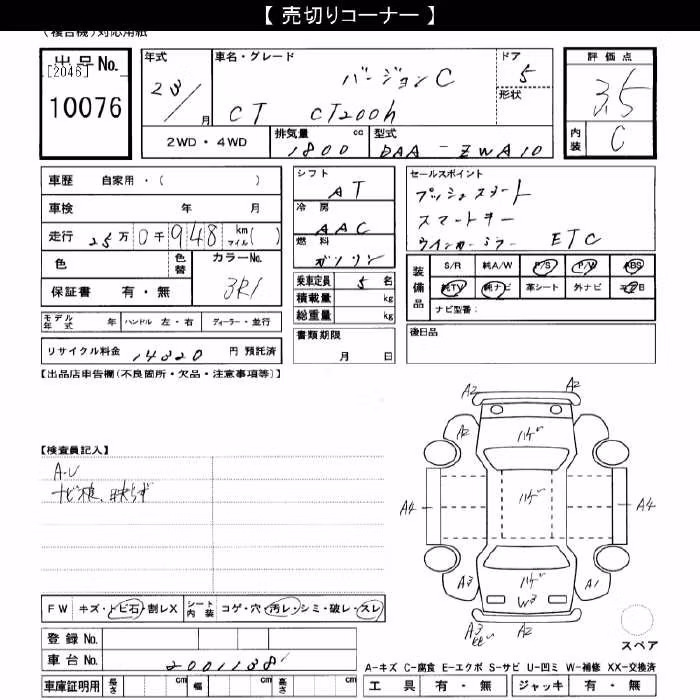 【 売切りコーナー 】
(複合機)対応用紙
出品No.
[2046]
10076
年式
23/
月
車名・グレード
バージョンC
CT CT200h
ドア
5
形状
評価点
3.5
内装
C
2WD・4WD
排気量
1800
cc
型式
DAA-ZWA10
車歴 自家用・( )
車検 年 月
走行 25万0千948 km マイル( )
色
色替
カラーNo.
3R1
保証書 有・無
モデル年式 年
ハンドル 左・右
ディーラー・並行
リサイクル料金 14020 円 預託済
シフト
AT
冷房
AAC
燃料
ガソリン
乗車定員 5 名
積載量 kg
総重量 kg
書類期限
月 日
セールスポイント
プッシュスタート
スマートキー
ウインカーミラー ETC
装備品
S/R 純A/W P/S P/W ABS
純TV 純ナビ 革シート 外ナビ エアB
ナビ型番:
後日品
【出品店車告欄(不良箇所・欠品・注意事項等)】
【検査員記入】
A-U
ナビ不良、映らず
A2 A2
A2 A2
ハゲ
A4 ハゲ A4
ハゲ
A3 W3 A1
A3 A2
スペア
FW キズ・トビ石・割レX
シート内装 コゲ・穴・汚レ・シミ・破レ・スレ
登録No.
車台No. 2001138
車庫証明用 長さ cm 幅 cm 高さ cm
A-キズ C-腐食 E-エクボ S-サビ U-凹ミ W-補修 XX-交換済
工具 有・無 ジャッキ 有・無